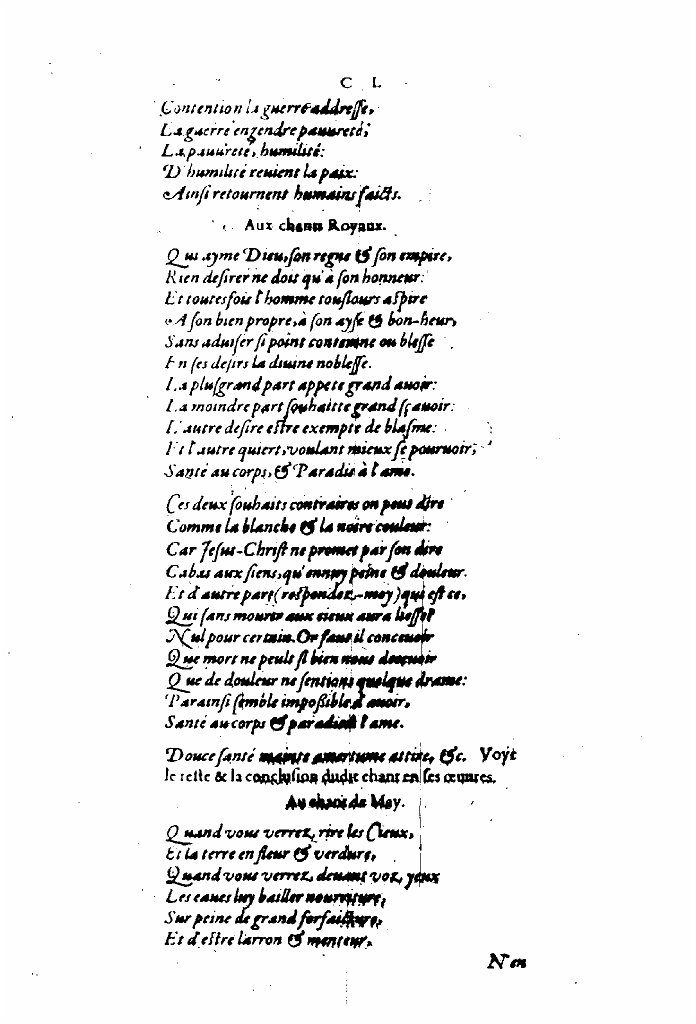 C L
Contention la guerre addresse,
La guerre engendre pauureté;
La pauureté, humilité:
D'humilité reuient la paix:
Ainsi retournent humains faicts.
Aux chants Royaux.
Qui ayme Dieu, son regne & son empire,
Rien desirer ne doit qu'à son honneur:
Et toutesfois l'homme tousiours aspire
A son bien propre, à son ayse & bon-heur,
Sans aduiser si point contemne ou blesse
En ses desirs la diuine noblesse.
La plusgrand part appete grand auoir:
La moindre part souhaitte grand sçauoir:
L'autre desire estre exempte de blasme:
Et l'autre quiert, voulant mieux se pouruoir,
Santé au corps, & Paradis à l'ame.
Ces deux souhaits contraires on peus dire
Comme la blanche & la noire couleur:
Car Jesus-Christ ne promet par son dire
Cabas aux siens, qu'ennuy peine & douleur.
Et d'autre part (respondez-moy) qui est ce,
Qui sans mourir aux cieux aura liesse?
Nul pour certain. Or faut il conceuoir
Que mort ne peult si bien nous deceuoir
Que de douleur ne sentions quelque drame:
Parainsi semble impoßible d'auoir,
Santé au corps & paradis à l'ame.
Douce santé mainte amertume attire, &c. Voyt
le reste & la conclusion dudit chant en ses œuures.
Au chant de May.
Quand vous verrez rire les Cieux,
Et la terre en fleur & verdure,
Quand vous verrez, deuant voz yeux
Les eaues luy bailler nourriture,
Sur peine de grand forfaicture,
Et d'estre larron & menteur,
N'en